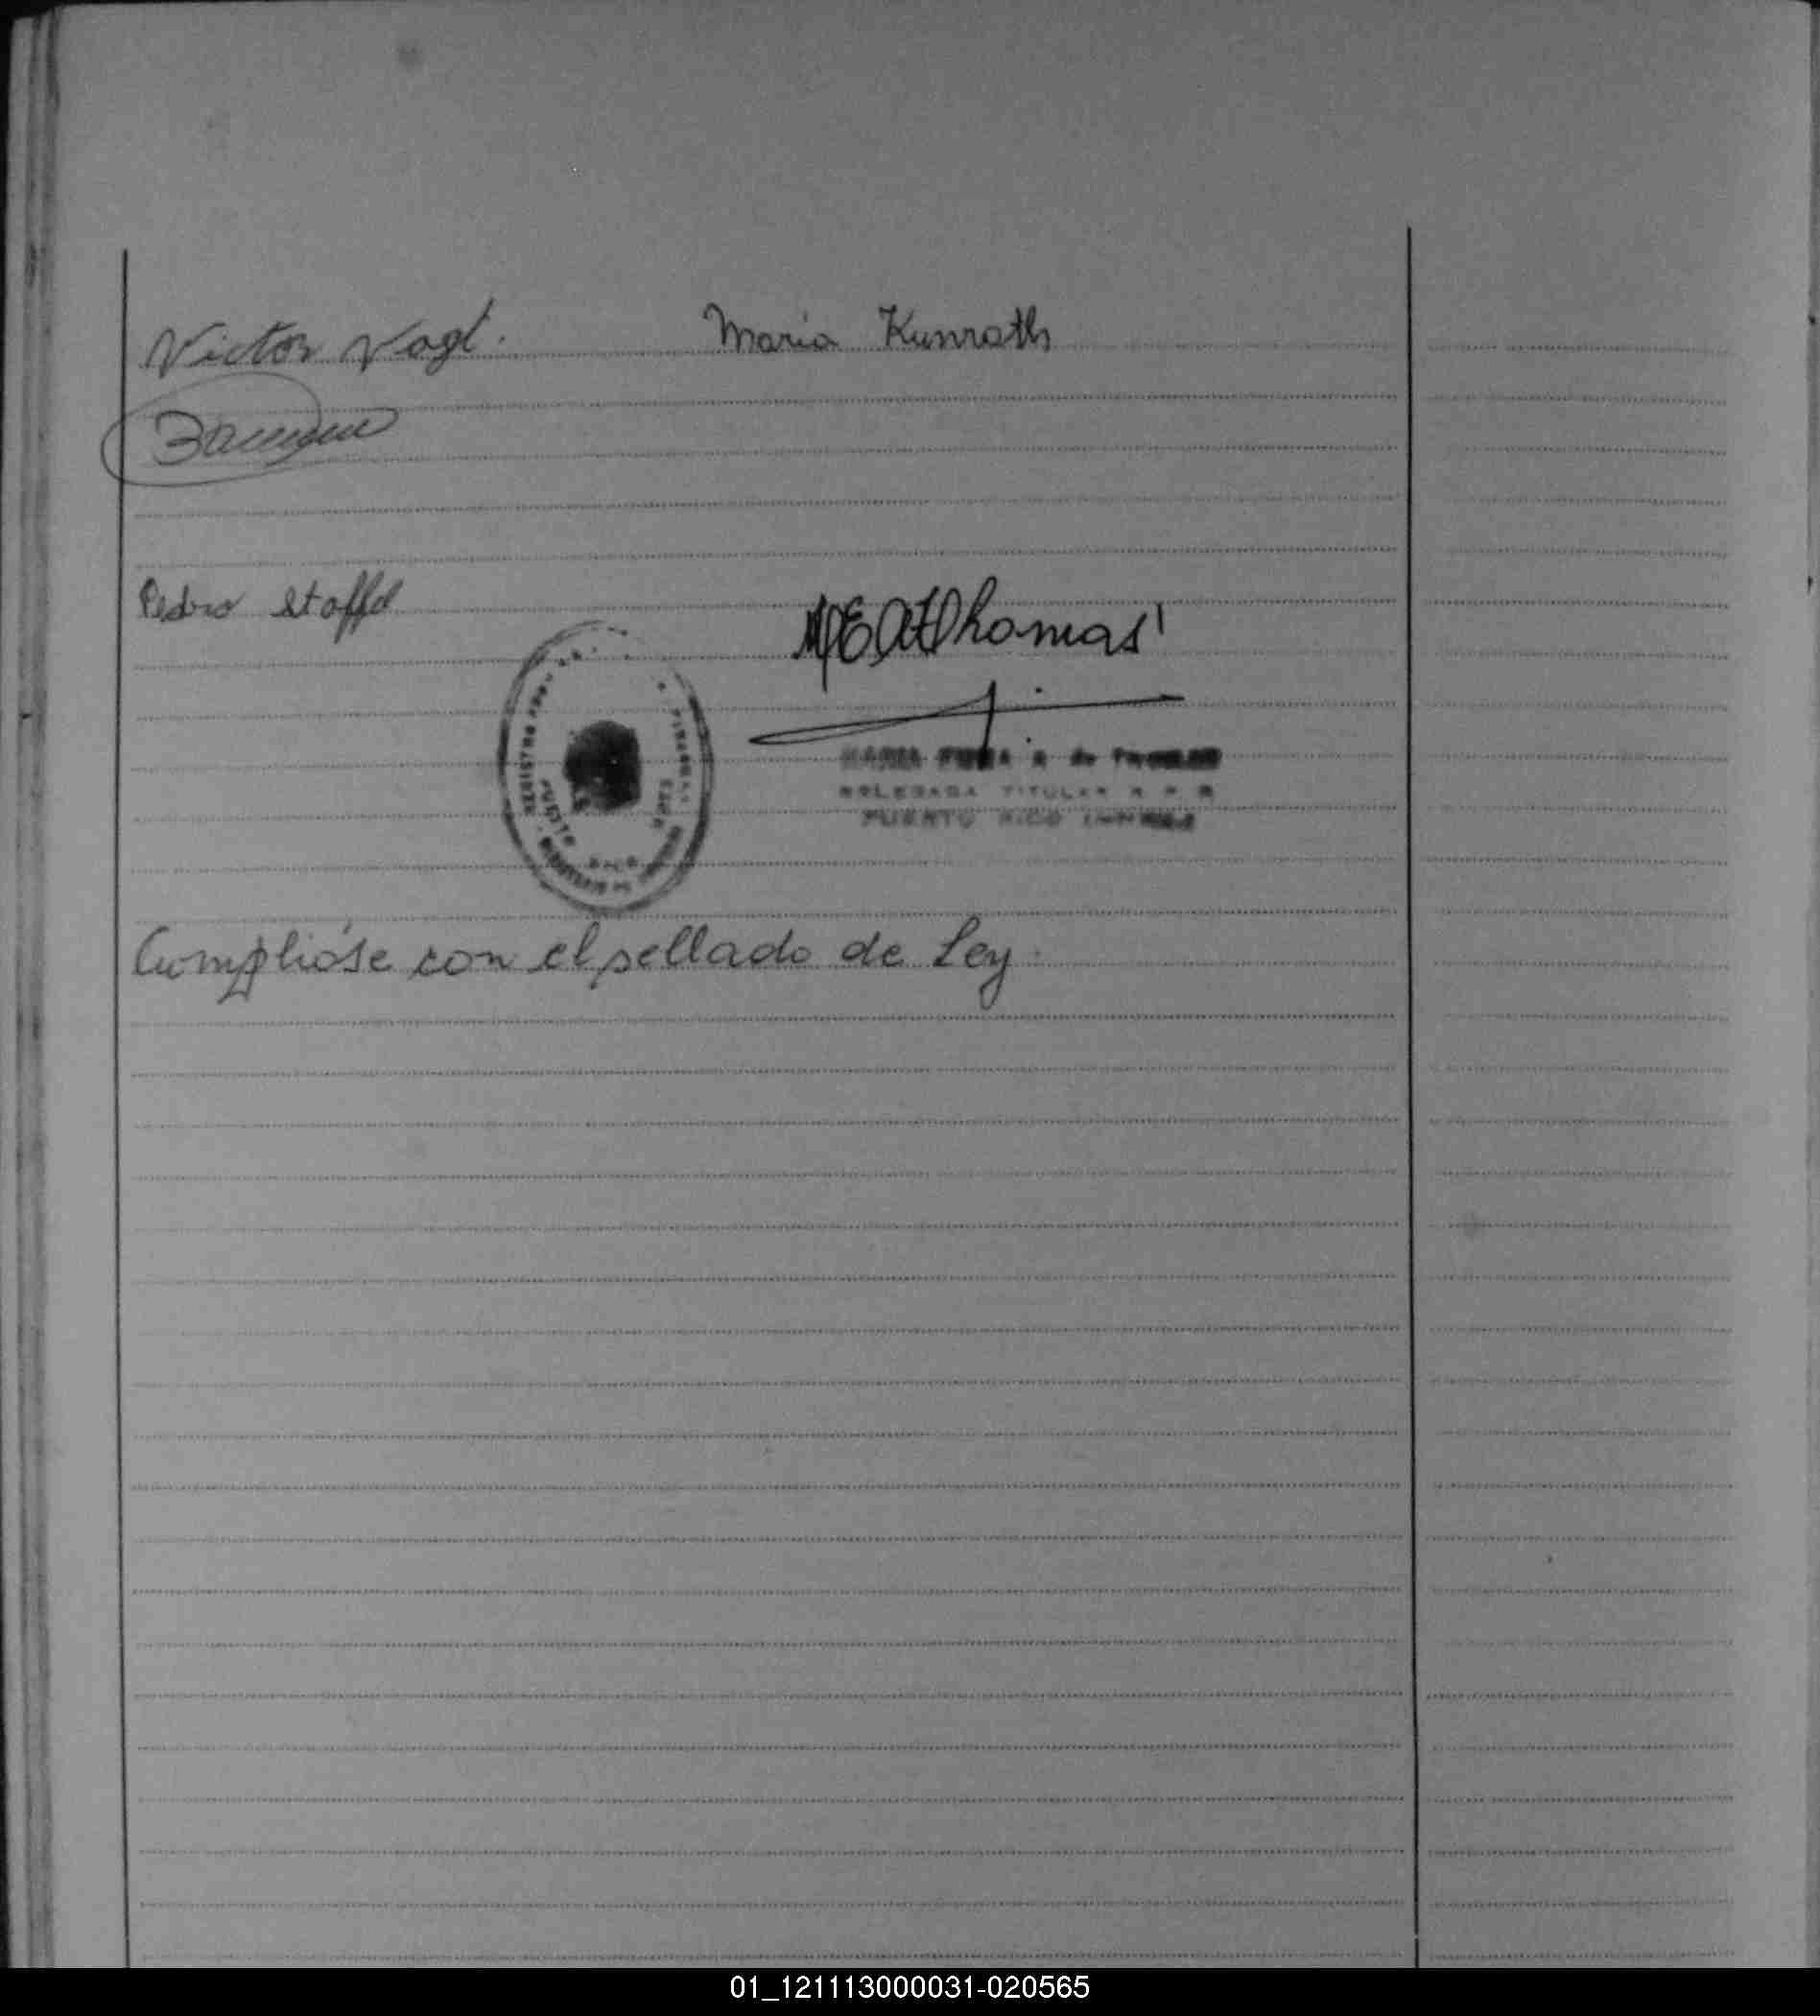 Victor Vogt. Maria Kunrath
Pedro Stoffel
MEAThomas
MARIA
DELEGADA TITULAR R P
PUERTO RICO
REGISTRO
Cumplióse con el sellado de Ley.
01_121113000031-020565